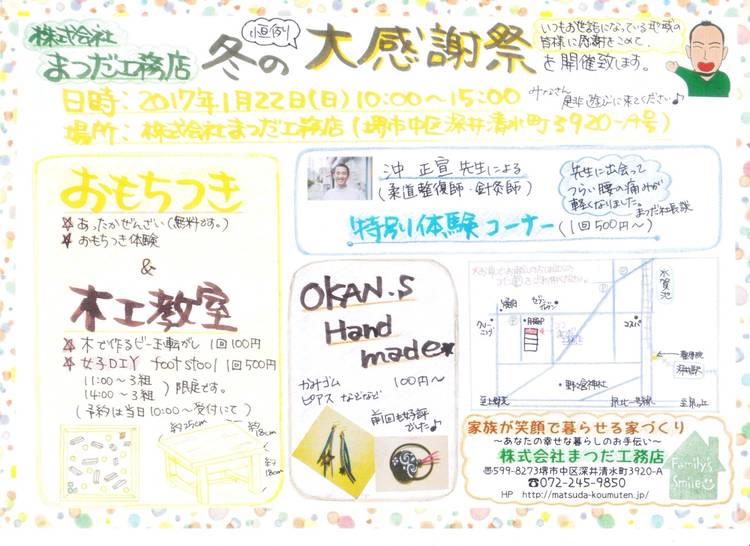 株式会社
まつだ工務店
小田祭り
冬の
大感謝祭
いつもお世話になっている地域の
皆様に感謝をこめて、
を開催致します。
みなさん
是非遊びに来てください♪
日時：2017年1月22日(日)10:00〜15:00
場所：株式会社まつだ工務店(堺市中区深井清水町3920-A号)
おもちつき
★あったかぜんざい(無料です。)
★おもちつき体験
&
木工教室
★木で作るビー玉転がし 1回100円
★女子DIY foot stool 1回500円
11:00〜3組
14:00〜3組
限定です。
(予約は当日10:00〜受付にて)
約25cm
約18cm
約18cm
沖 正宣 先生による
(柔道整復師・針灸師)
特別体験コーナー
(1回500円〜)
先生に出会って
つらい腰の痛みが
軽くなりました。
まつだ社長談
OKAN.S
Hand
made★
かみゴム
ピアス などなど
100円〜
前回も好評
でした♪
水賀池
コスパ
野々宮神社
家族が笑顔で暮らせる家づくり
〜あなたの幸せな暮らしのお手伝い〜
株式会社まつだ工務店
〒599-8273堺市中区深井清水町3920-A
☎072-245-9850
HP http://matsuda-koumuten.jp/
Family's
Smile